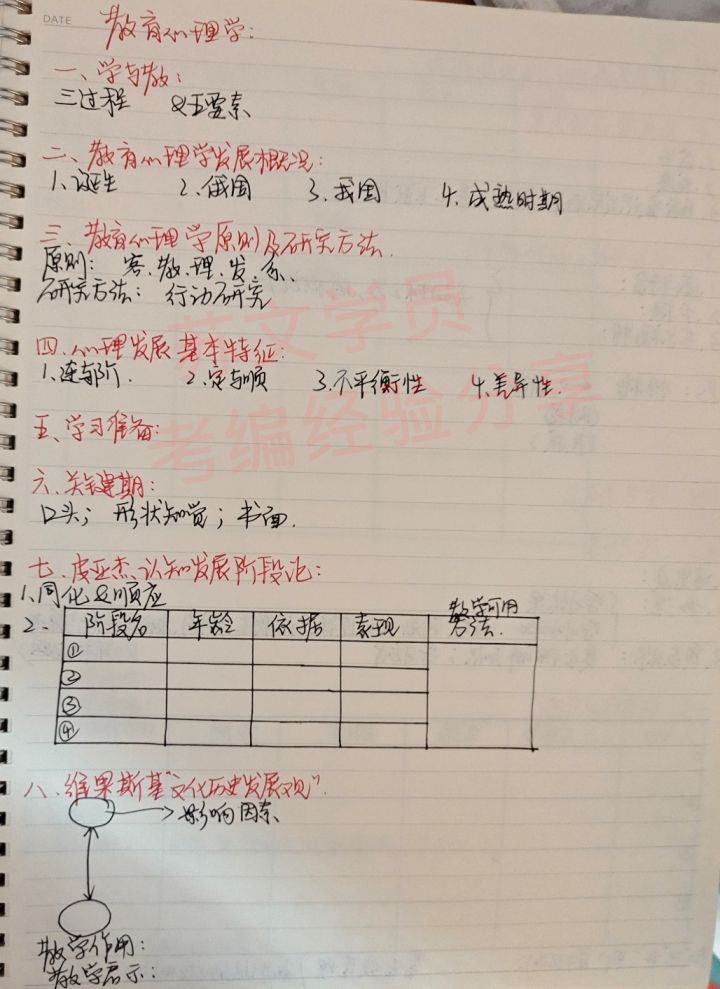 DATE
教育心理学:
一、学与教:
三过程 &五要素
二、教育心理学发展概况:
1.诞生 2.俄国 3.我国 4.成熟时期
三、教育心理学原则及研究方法.
原则: 客、教、理、发、系、
研究方法: 行动研究
四.心理发展基本特征:
1.连与阶. 2.定与顺 3.不平衡性 4.差异性.
五、学习准备:
六.关键期:
口头; 形状知觉; 书面.
七.皮亚杰认知发展阶段论:
1.同化&顺应
2. 阶段名 年龄 依据 表现 教学可用方法.
①
②
③
④
八.维果斯基"文化历史发展观".
影响因素
教学作用:
教学启示:
学员
考编经验分享